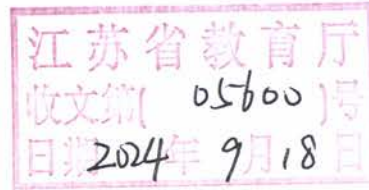 江苏省教育厅
收文第( 05600 )号
日期2024年 9月18日